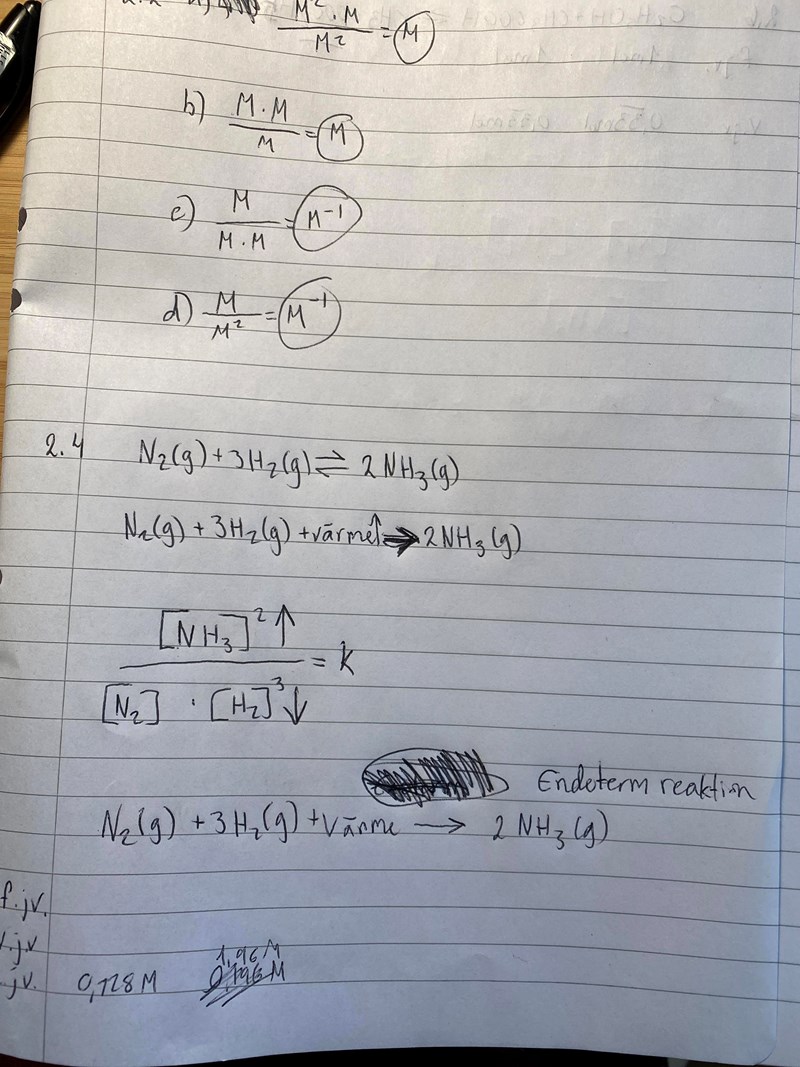 2.2 a) M² · M / M² = M
b) M · M / M = M
c) M / M · M = M⁻¹
d) M / M² = M⁻¹
2.4 N₂(g) + 3H₂(g) ⇌ 2NH₃(g)
N₂(g) + 3H₂(g) + värme↑ → 2NH₃(g)
[NH₃]² ↑ / [N₂] · [H₂]³ ↓ = k
Endeterm reaktion
N₂(g) + 3H₂(g) + Värme → 2NH₃(g)
f.jv.
.jv
1,96 M
jv. 0,128 M 0,196 M